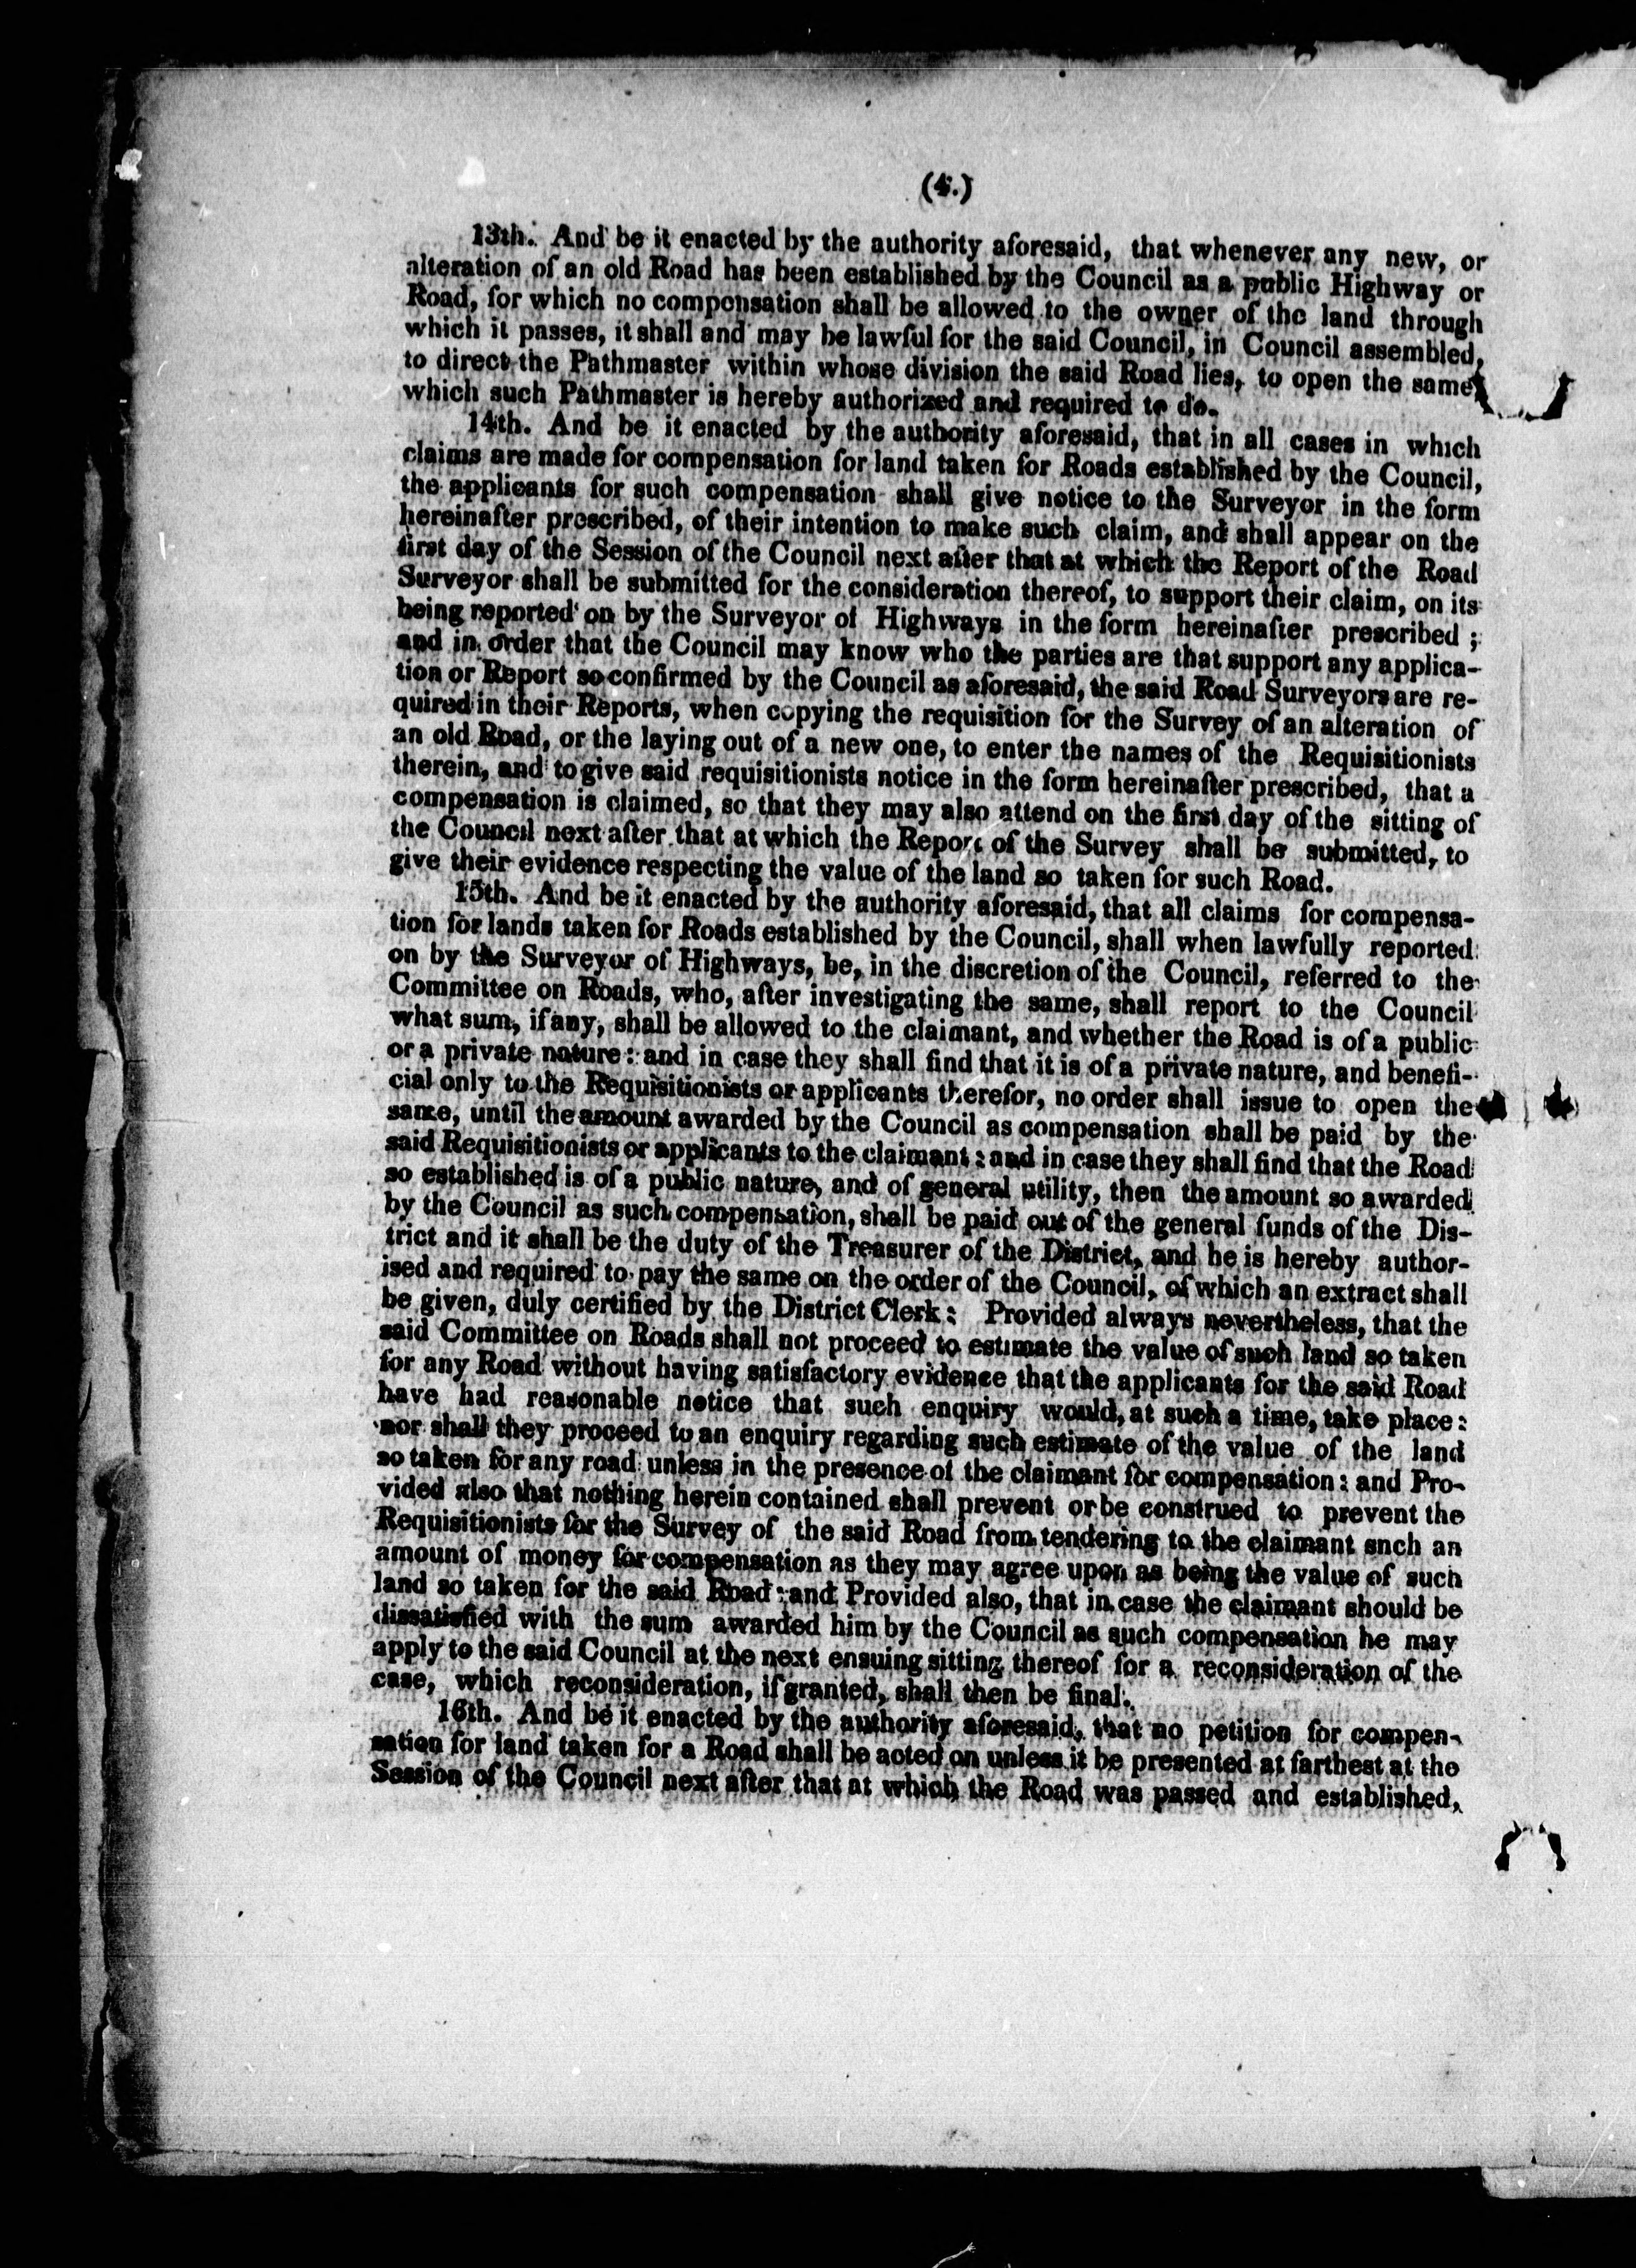 (4.)
13th. And be it enacted by the authority aforesaid, that whenever any new, or
alteration of an old Road has been established by the Council as a public Highway or
Road, for which no compensation shall be allowed to the owner of the land through
which it passes, it shall and may be lawful for the said Council, in Council assembled,
to direct the Pathmaster within whose division the said Road lies, to open the same
which such Pathmaster is hereby authorized and required to do.
14th. And be it enacted by the authority aforesaid, that in all cases in which
claims are made for compensation for land taken for Roads established by the Council,
the applicants for such compensation shall give notice to the Surveyor in the form
hereinafter prescribed, of their intention to make such claim, and shall appear on the
first day of the Session of the Council next after that at which the Report of the Road
Surveyor shall be submitted for the consideration thereof, to support their claim, on its
being reported on by the Surveyor of Highways in the form hereinafter prescribed ;
and in order that the Council may know who the parties are that support any applica-
tion or Report so confirmed by the Council as aforesaid, the said Road Surveyors are re-
quired in their Reports, when copying the requisition for the Survey of an alteration of
an old Road, or the laying out of a new one, to enter the names of the Requisitionists
therein, and to give said requisitionists notice in the form hereinafter prescribed, that a
compensation is claimed, so that they may also attend on the first day of the sitting of
the Council next after that at which the Report of the Survey shall be submitted, to
give their evidence respecting the value of the land so taken for such Road.
15th. And be it enacted by the authority aforesaid, that all claims for compensa-
tion for lands taken for Roads established by the Council, shall when lawfully reported
on by the Surveyor of Highways, be, in the discretion of the Council, referred to the
Committee on Roads, who, after investigating the same, shall report to the Council
what sum, if any, shall be allowed to the claimant, and whether the Road is of a public
or a private nature : and in case they shall find that it is of a private nature, and benefi-
cial only to the Requisitionists or applicants therefor, no order shall issue to open the
same, until the amount awarded by the Council as compensation shall be paid by the
said Requisitionists or applicants to the claimant : and in case they shall find that the Road
so established is of a public nature, and of general utility, then the amount so awarded
by the Council as such compensation, shall be paid out of the general funds of the Dis-
trict and it shall be the duty of the Treasurer of the District, and he is hereby author-
ised and required to pay the same on the order of the Council, of which an extract shall
be given, duly certified by the District Clerk : Provided always nevertheless, that the
said Committee on Roads shall not proceed to estimate the value of such land so taken
for any Road without having satisfactory evidence that the applicants for the said Road
have had reasonable notice that such enquiry would, at such a time, take place :
nor shall they proceed to an enquiry regarding such estimate of the value of the land
so taken for any road unless in the presence of the claimant for compensation : and Pro-
vided also that nothing herein contained shall prevent or be construed to prevent the
Requisitionists for the Survey of the said Road from tendering to the claimant snch an
amount of money for compensation as they may agree upon as being the value of such
land so taken for the said Road : and Provided also, that in case the claimant should be
dissatisfied with the sum awarded him by the Council as such compensation he may
apply to the said Council at the next ensuing sitting thereof for a reconsideration of the
case, which reconsideration, if granted, shall then be final.
16th. And be it enacted by the authority aforesaid, that no petition for compen-
sation for land taken for a Road shall be acted on unless it be presented at farthest at the
Session of the Council next after that at which the Road was passed and established,